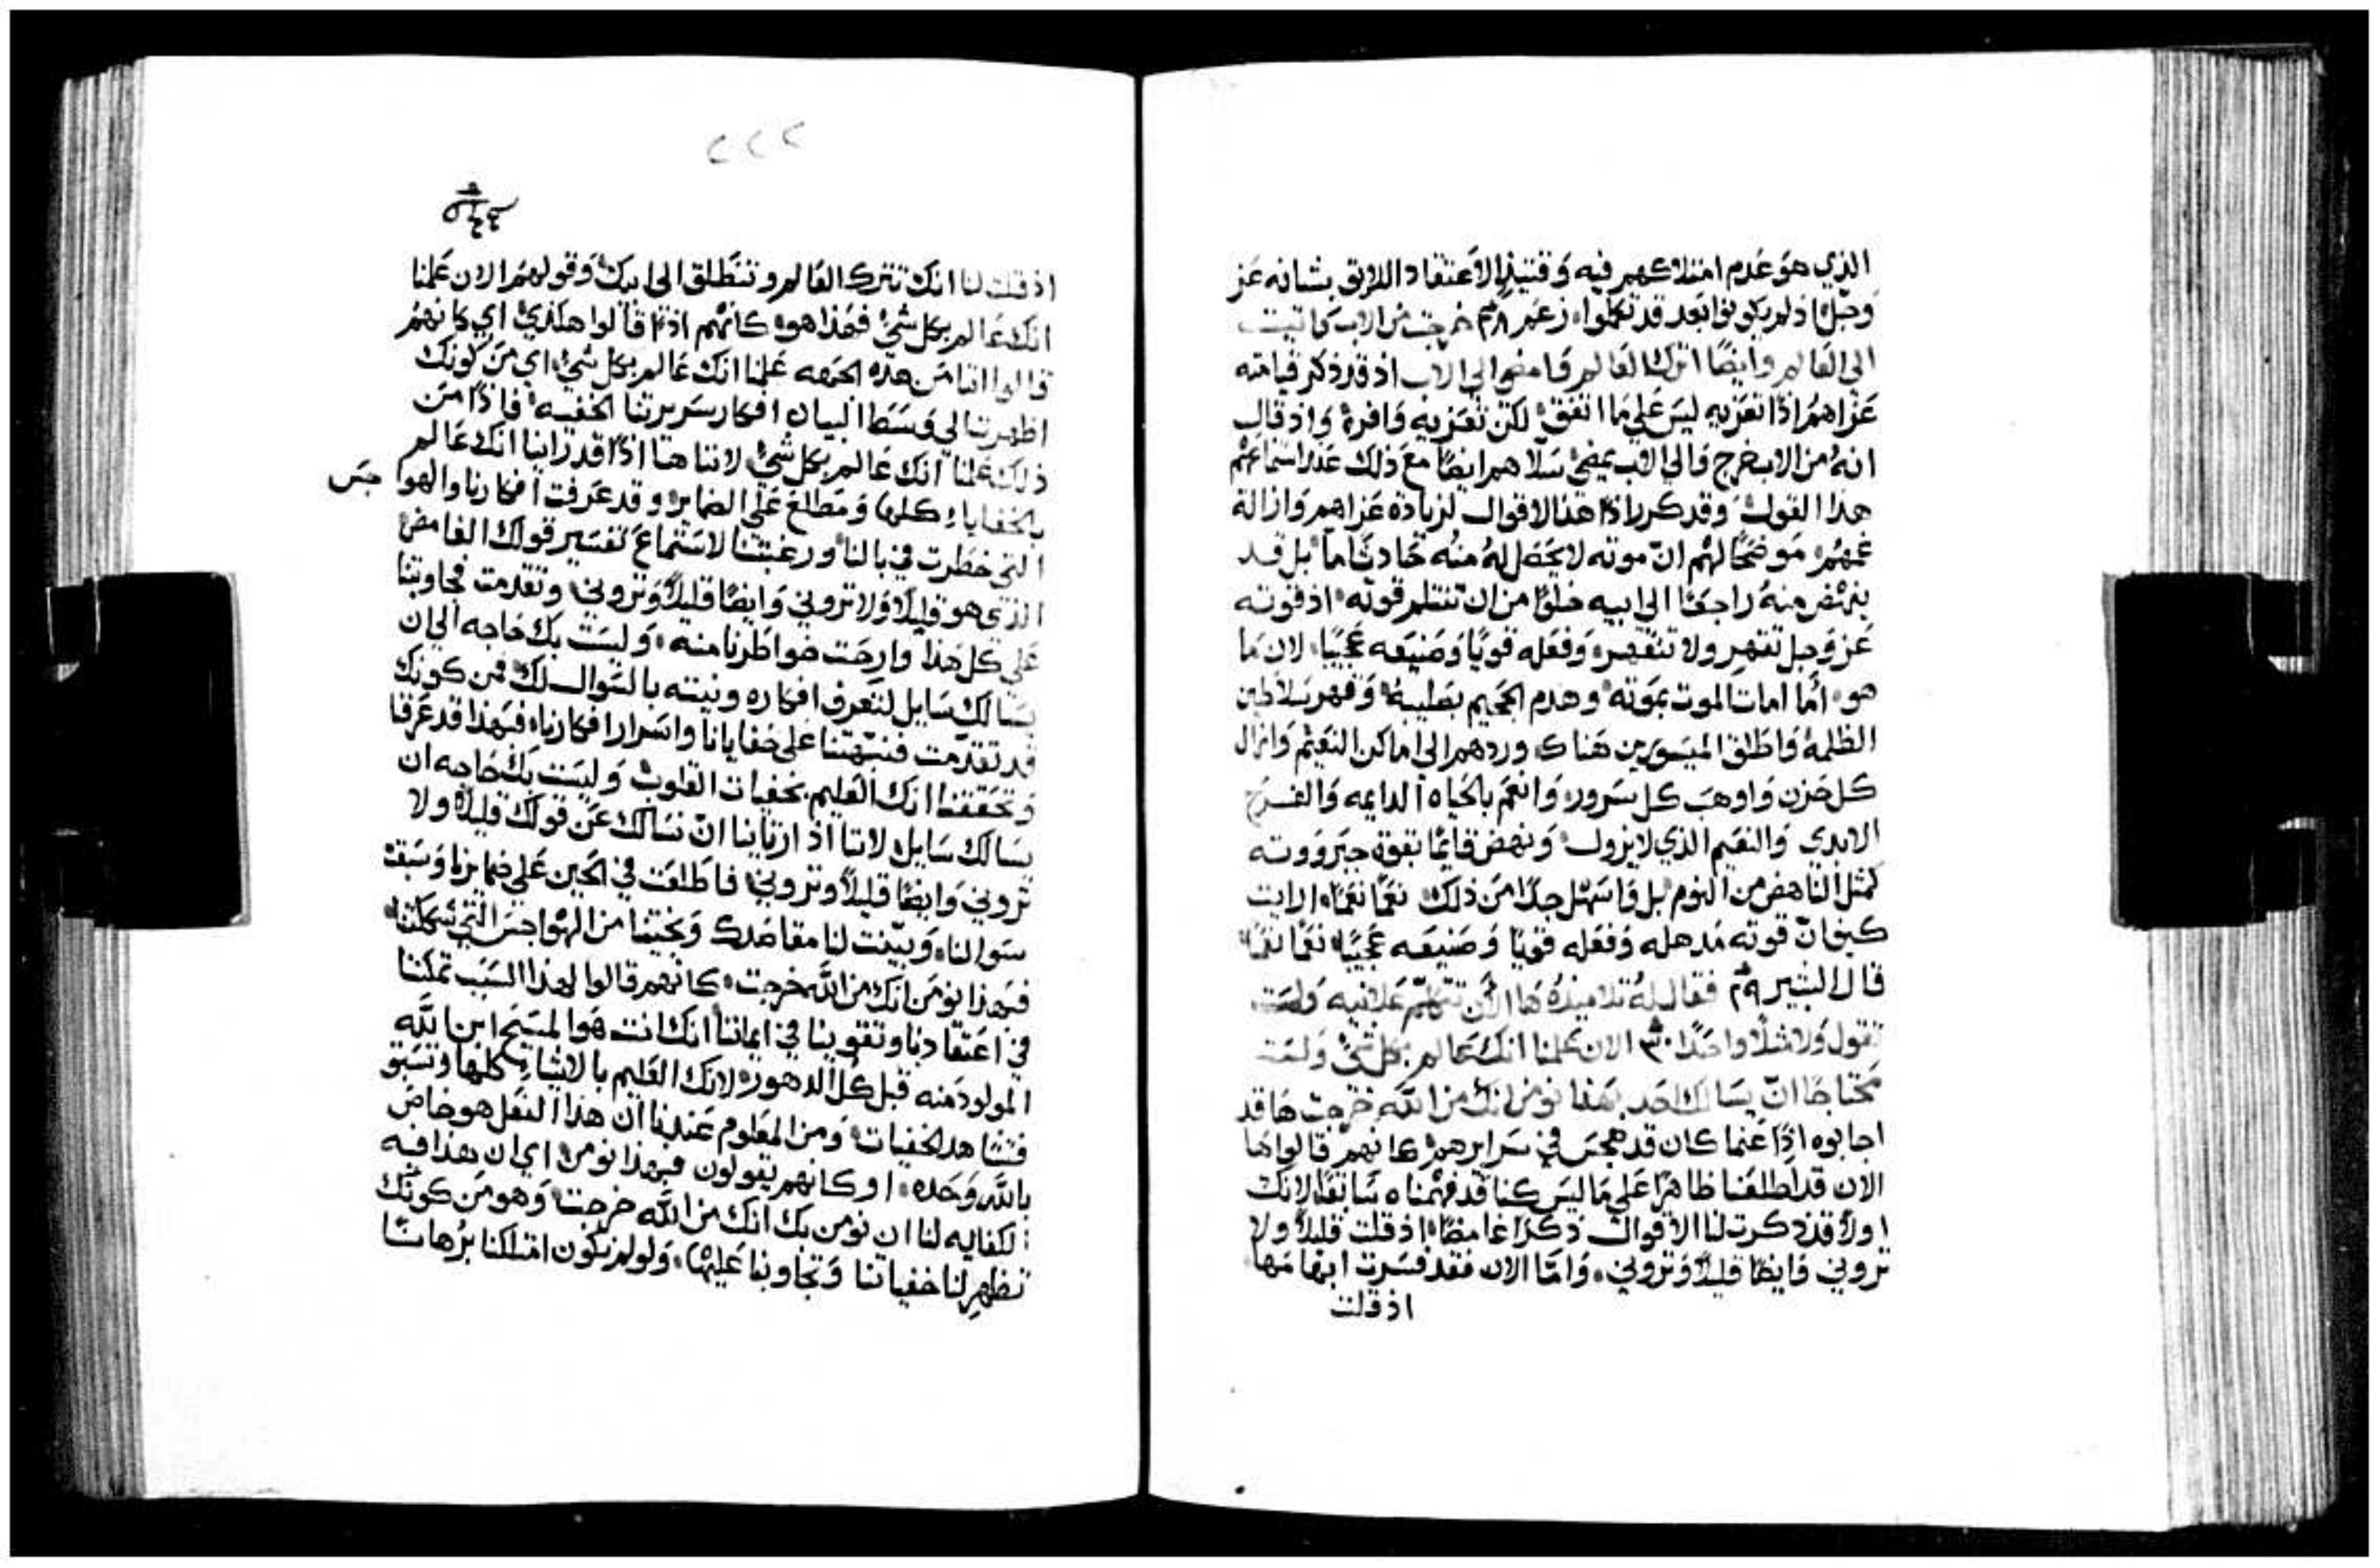 الذي هو عدم امتلاكهم فيه وقتيذٍ الاعتقاد اللايق بشانه عز
وجل اذ لم يكونوا بعد قد تكملوا، زعم ٢٨ خرجت من الاب كما تيت
الى العالم وايضًا اترك العالم وامضي الى الاب اذ قد ذكر قيامته
عزاهم اذًا تعزيه ليس على ما اتفق لكن تعزيه وافرة واذ قال
انه من الاب خرج والى الاب يمضي سلاهم ايضًا مع ذلك عند استماعهم
هذا القول وقد كرر اذًا هذا الاقوال لزيادة عزاهم وازالة
غمهم موضحًا لهم ان موته لا يحصل له منه حادث ما بل قد
ينهض منه راجعًا الى ابيه خلوًا من ان تنثلم قوته اذ قوته
عز وجل تقهر ولا تنقهر وفعله قويًا وصنيعه عجيبًا لان ما
هو اما امات الموت بموته وهدم الجحيم بصليبه وقهر سلاطين
الظلمة واطلق الميسورين هناك وردهم الى اماكن النعيم وازال
كل حزن واوهب كل سرور وانعم بالحياه الدايمه والفرح
الابدي والنعيم الذي لا يزول ونهض قايمًا بقوة جبروته
كمثل الناهض من النوم بل واسهل جدًا من ذلك نعمًا نعمًا الايت
كيف ان قوته مدهله وفعله قويًا وصنيعه عجيبًا نعمًا نعمًا
قال البشير ٢٩ فقال له تلاميذه ها الان تتكلم علانيه ولست
تقول ولا مثلًا واحدًا ٣٠ الان علمنا انك عالم بكل شي ولست
محتاجًا ان يسالك احد بهذا نومن انك من الله خرجت ها قد
اجابوه اذًا عنما كان قد هجس في سرايرهم كانهم قالوا ها
الان قد اطلعنا ظاهرًا على ما ليس كنا قد فهمناه سابقًا لانك
اولًا قد ذكرت لنا الاقوال ذكرًا غامضًا اذ قلت قليلًا ولا
تروني وايضًا قليلًا وتروني، واما الان فقد فسرت ابهامها
اذ قلت
٢٢٢
اذ قلت لنا انك تترك العالم وتنطلق الى ابيك وقولهم الان علمنا
انك عالم بكل شي فهذا هو كانهم اذًا قالوا هكذي اي كانهم
قالوا اننا من هذه الجهه علمنا انك عالم بكل شي اي من كونك
اظهرت الى وسط البيان افكار سريرتنا الخفيه فاذًا من
ذلك علمنا انك عالم بكل شي لاننا هنا اذًا قد راينا انك عالم
بالخفايا كلها ومطلع على الضماير وقد عرفت افكارنا والهوا جس
التي خطرت في بالنا ورغبتنا لاستماع تفسير قولك الغامض
الذي هو قليلًا ولا تروني وايضًا قليلًا وتروني وتقدمت فجاوبتنا
على كل هذا وارحت خواطرنا منه، وليست بك حاجه الى ان
يسالك سايل لتعرف افكاره ونيته بالسوال لك فمن كونك
قد تقدمت فنبهتنا على خفايانا واسرار افكارنا فبهذا قد عرفنا
وتحققنا انك العليم بخفيات القلوب وليست بك حاجه ان
يسالك سايل لاننا اذ ارتاينا ان نسالك عن قولك قليلًا ولا
تروني وايضًا قليلًا وتروني فاطلعت في الحين على ضمايرنا وسبقت
سوالنا وبينت لنا مقاصدك ونجيتنا من الهواجس التي شملتنا
فبهذا نومن انك من الله خرجت كانهم قالوا لهذا السبب تمكنا
في اعتقادنا وتقوينا في ايماننا انك انت هو المسيح ابن الله
المولود منه قبل كل الدهور لانك العليم بالاشياء كلها وتسبق
فتشاهد الخفيات ومن المعلوم عندنا ان هذا الفعل هو خاص
بالله وحده، او كانهم يقولون فبهذا نومن اي ان هذا فيه
الكفايه لنا ان نومن بك انك من الله خرجت وهو من كونك
تظهر لنا خفياتنا وتجاوبنا عليها، ولو لم نكون امتلكنا برهانًا